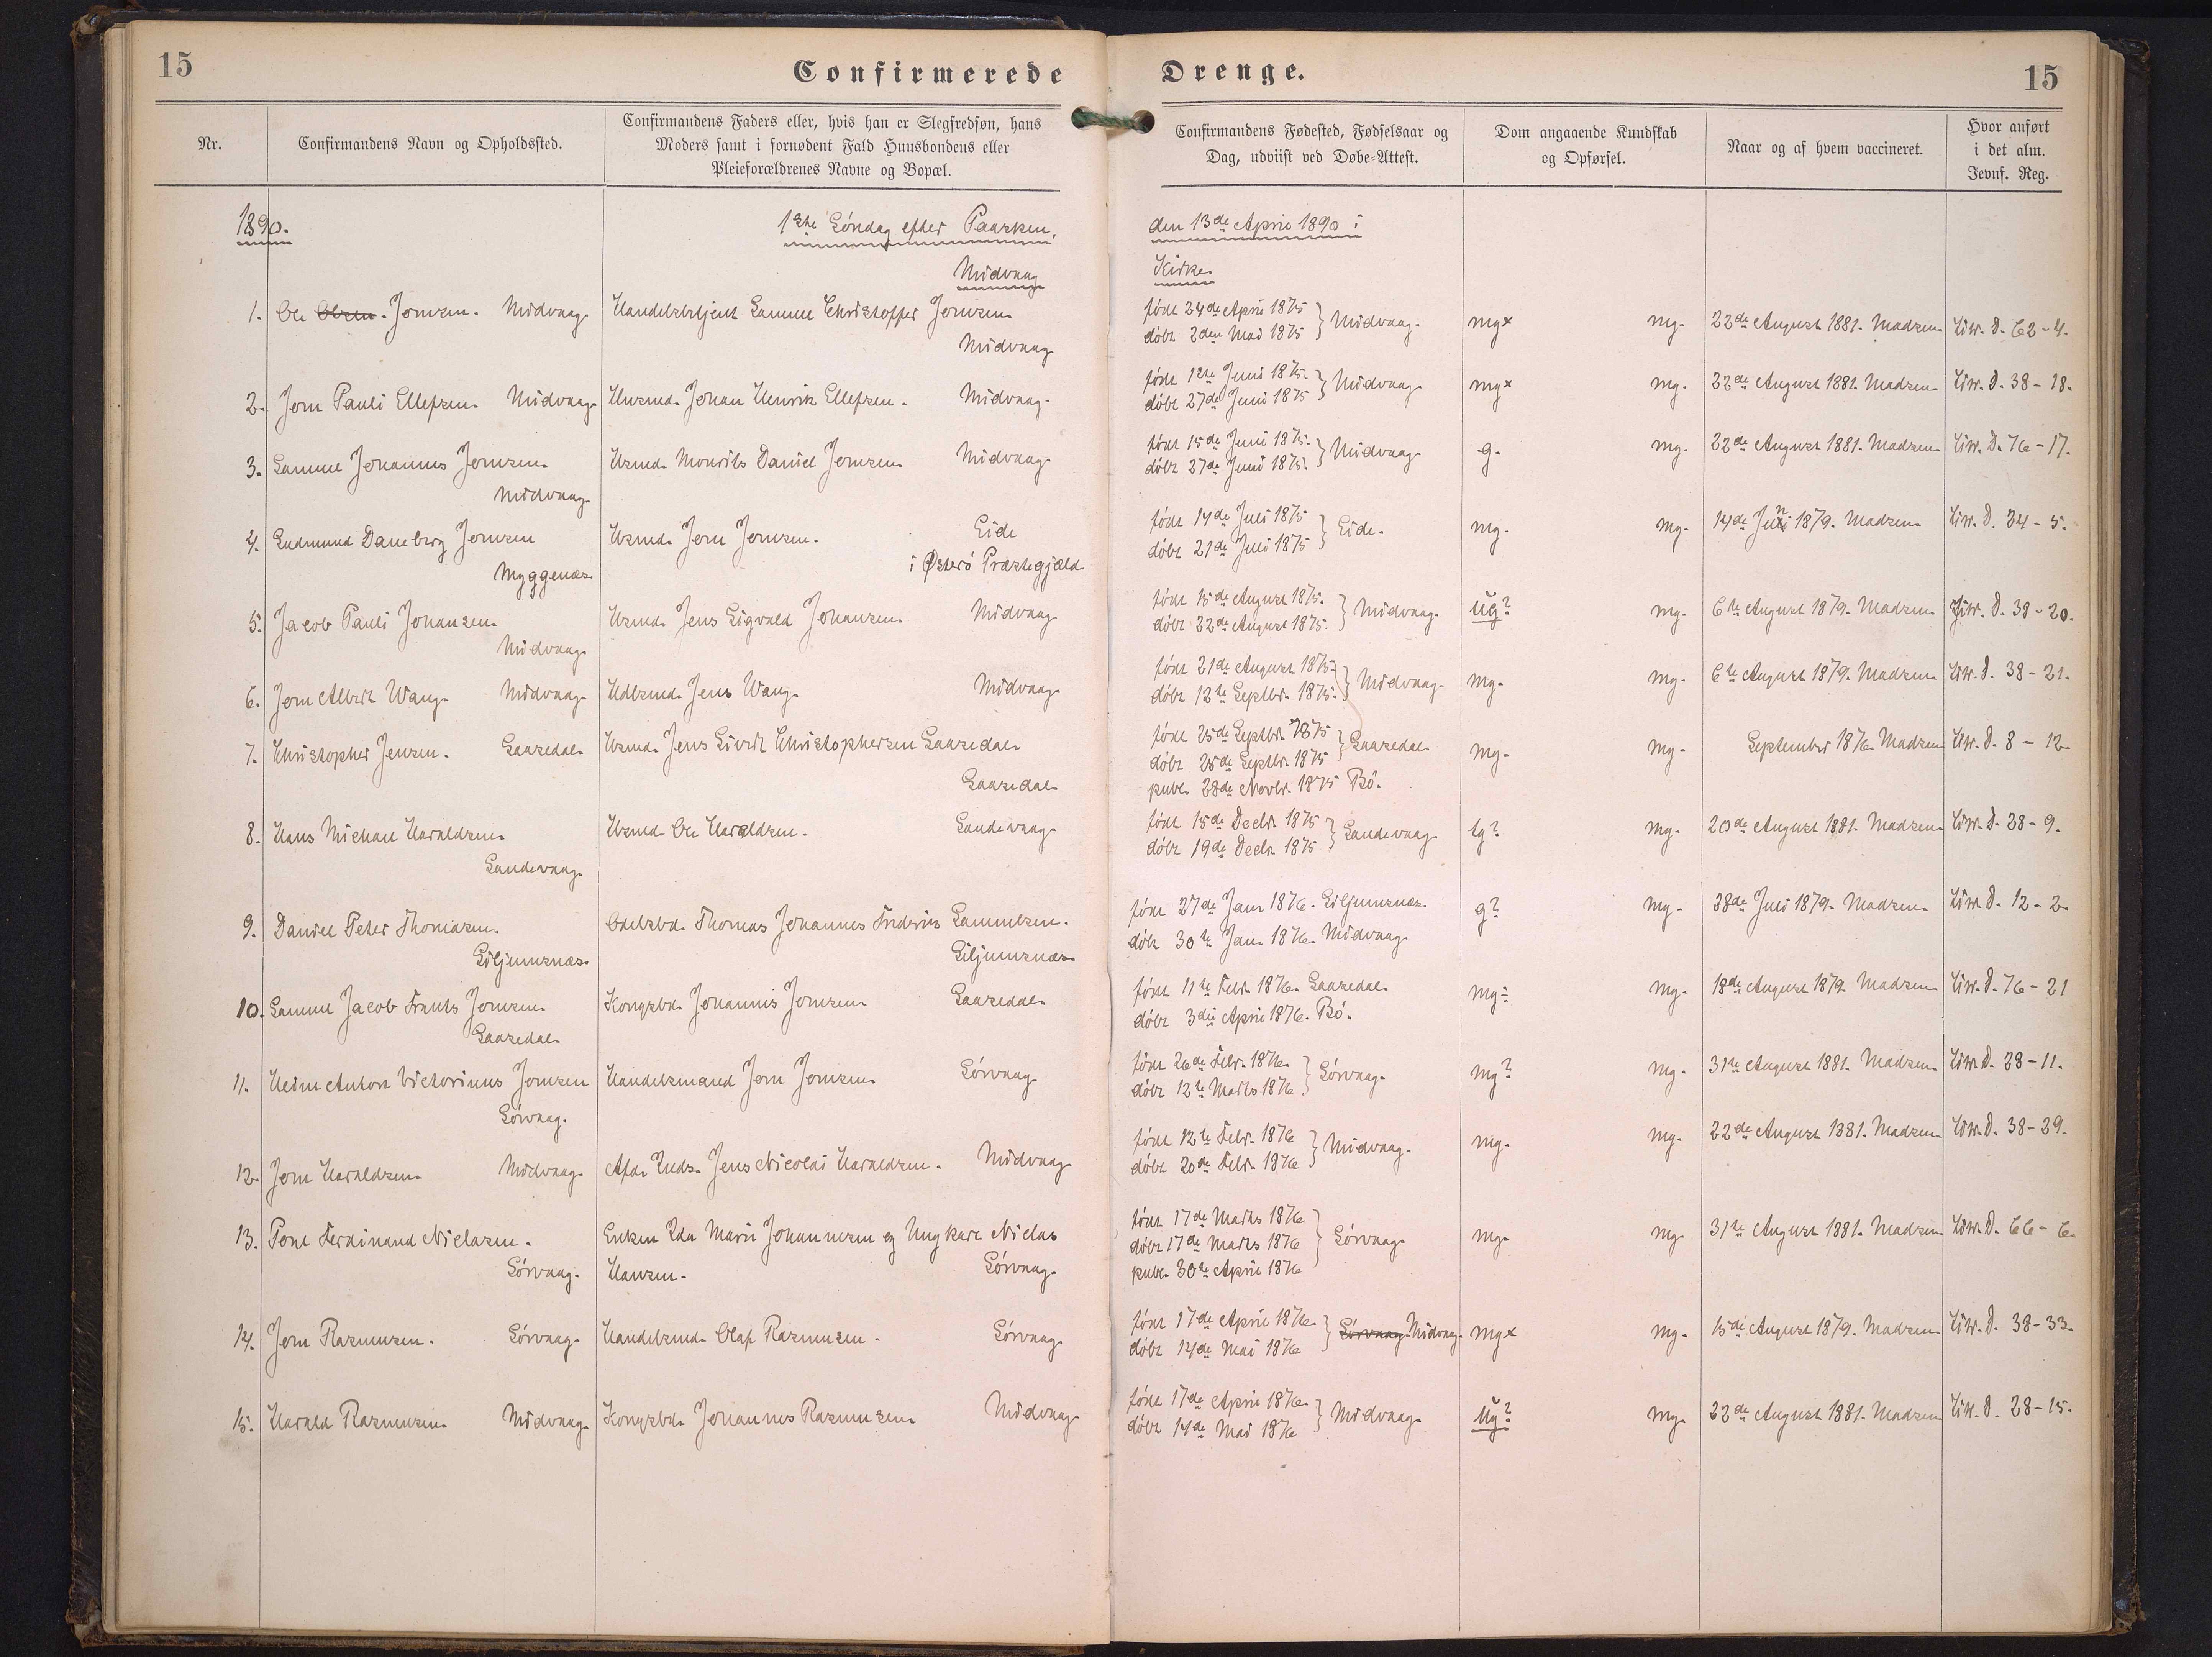 15
Confirmerede Drenge.
15
Nr.
Confirmandens Navn og Opholdssted.
Confirmandens Faders eller, hvis han er Slegfredsøn, hans
Moders samt i fornødent Fald Huusbondens eller
Pleieforældrenes Navne og Bopæl.
Confirmandens Fødested, Fødselsaar og
Dag, udviist ved Døbe-Attest.
Dom angaaende Kundskab
og Opførsel.
Naar og af hvem vaccineret.
Hvor anført
i det alm.
Jevnf. Reg.
1890. 1ste Søndag efter Paasken, den 13de April 1890 i
Midvaag Kirke.
1. Ole Olsen. Joensen. Midvaag Handelsbetjent Samuel Christoffer Joensen
Midvaag
født 24de April 1875
døbt 2den Mai 1875 } Midvaag. mg+ mg. 22de August 1881. Madsen Liw. D. 62-4.
2. Joen Pauli Ellefsen. Midvaag Huusmd. Johan Henrik Ellefsen. Midvaag.
født 1ste Juni 1875.
døbt 27de Juni 1875 } Midvaag mg+ mg. 22de August 1881. Madsen Liw. D. 38-18.
3. Samuel Johannes Joensen
Midvaag
Husmd. Mourits Daniel Joensen Midvaag
født 15de Juni 1875.
døbt 27de Juni 1875. } Midvaag g. mg. 22de August 1881. Madsen Liw. D. 76-17.
4. Gudmund Daneberg Joensen
Myggenæs
Husmd. Joen Joensen. Eide
i Østerø Præstegjæld
født 14de Juli 1875
døbt 21de Juli 1875 } Eide. mg. mg. 14de Juni 1879. Madsen Liw. D. 34-5.
5. Jacob Pauli Johansen
Midvaag
Husmd. Jens Sigvald Johansen Midvaag
født 15de August 1875.
døbt 22de August 1875. } Midvaag. ug? mg. 6te August 1879. Madsen Liw. D. 38-20.
6. Joen Albert Wang. Midvaag Udbsmd. Jens Wang. Midvaag
født 21de August 1875.
døbt 12te Septbr. 1875. } Midvaag mg. mg. 6te August 1879. Madsen Liw. D. 38-21.
7. Christopher Jensen. Gaasedal Husmd. Jens Sivert Christophersen Gaasedal
Gaasedal
født 25de Septbr. 1875
døbt 25de Septbr. 1875 } Gaasedal
publ. 28de Novbr. 1875 Bø.
mg. mg. September 1876. Madsen Liw. D. 8-12
8. Hans Michael Haraldsen
Sandevaag
Husmd. Ole Haraldsen. Sandevaag
født 15de Decbr. 1875
døbt 19de Decbr. 1875 } Sandevaag tg? mg. 20de August 1881. Madsen Liw. D. 28-9.
9. Daniel Peter Thomasen
Giljumsnæs
Odelsbd. Thomas Johannes Frederik Samuelsen.
Giljumsnæs
født 27de Jan. 1876. Giljumsnæs
døbt 30te Jan. 1876. Midvaag
g? mg. 28de Juli 1879. Madsen Liw. D. 12-2
10. Samuel Jacob Frants Joensen
Gaasedal
Kongsbd. Johannes Joensen Gaasedal
født 11te Febr. 1876. Gaasedal
døbt 3die April 1876. Bø.
mg÷ mg. 18de August 1879. Madsen Liw. D. 76-21
11. Heim Anton Victorinus Joensen
Sørvaag.
Handelsmand Joen Joensen Sørvaag
født 26de Febr. 1876.
døbt 12te Marts 1876. } Sørvaag. mg? mg. 31te August 1881. Madsen. Liw. D. 28-11.
12. Joen Haraldsen Midvaag Afd. Jens Nicolai Haraldsen. Midvaag
født 12te Febr. 1876
døbt 20de Febr. 1876 } Midvaag. mg. mg. 22de August 1881. Madsen Liw. D. 38-29.
13. Poul Ferdinand Niclasen.
Sørvaag.
Enken Ida Marie Johannesen og Ungkarl Niclas
Hansen. Sørvaag.
født 17de Marts 1876
døbt 17de Marts 1876 } Sørvaag
publ. 30te April 1876
mg. mg. 31te August 1881. Madsen Liw. D. 66-6.
14. Joen Rasmusen. Sørvaag Handelsmd. Olaf Rasmusen. Sørvaag.
født 17de April 1876.
døbt 14de Mai 1876 } Sørvaag Midvaag. mg+ mg. 15de August 1879. Madsen Liw. D. 38-33.
15. Harald Rasmusen Midvaag Kongsbd. Johannes Rasmusen Midvaag
født 17de April 1876.
døbt 14de Mai 1876 } Midvaag ug? mg. 22de August 1881. Madsen Liw. D. 28-15.